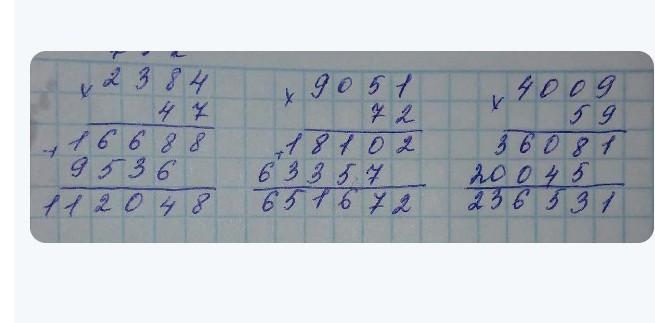 × 2384
47
+ 16688
9536
112048
× 9051
72
+ 18102
63357
651672
× 4009
59
36081
20045
236531